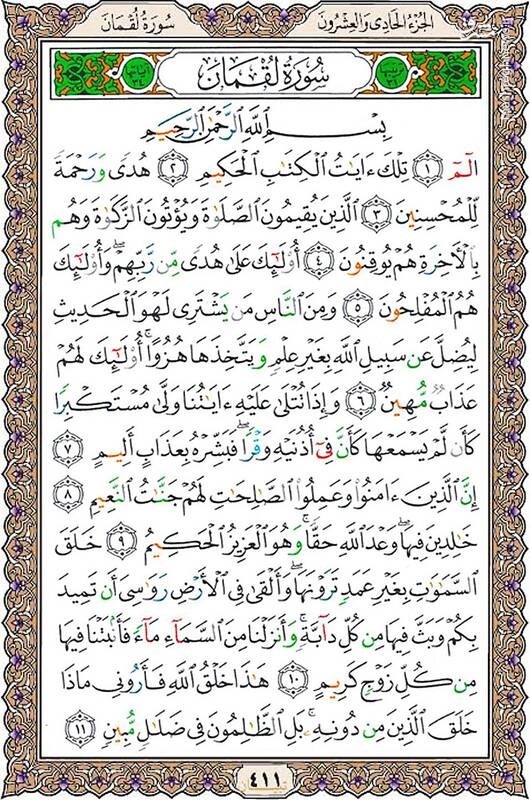 الجزء الحادي والعشرون
سورة لقمان
سُورَةُ لُقْمَانَ
بِسْمِ ٱللَّهِ ٱلرَّحْمَٰنِ ٱلرَّحِيمِ
الٓمٓ ۝١ تِلْكَ ءَايَٰتُ ٱلْكِتَٰبِ ٱلْحَكِيمِ ۝٢ هُدًى وَرَحْمَةً
لِّلْمُحْسِنِينَ ۝٣ ٱلَّذِينَ يُقِيمُونَ ٱلصَّلَوٰةَ وَيُؤْتُونَ ٱلزَّكَوٰةَ وَهُم
بِٱلْءَاخِرَةِ هُمْ يُوقِنُونَ ۝٤ أُو۟لَٰٓئِكَ عَلَىٰ هُدًى مِّن رَّبِّهِمْ ۖ وَأُو۟لَٰٓئِكَ
هُمُ ٱلْمُفْلِحُونَ ۝٥ وَمِنَ ٱلنَّاسِ مَن يَشْتَرِى لَهْوَ ٱلْحَدِيثِ
لِيُضِلَّ عَن سَبِيلِ ٱللَّهِ بِغَيْرِ عِلْمٍ وَيَتَّخِذَهَا هُزُوًا ۚ أُو۟لَٰٓئِكَ لَهُمْ
عَذَابٌ مُّهِينٌ ۝٦ وَإِذَا تُتْلَىٰ عَلَيْهِ ءَايَٰتُنَا وَلَّىٰ مُسْتَكْبِرًا
كَأَن لَّمْ يَسْمَعْهَا كَأَنَّ فِىٓ أُذُنَيْهِ وَقْرًا ۖ فَبَشِّرْهُ بِعَذَابٍ أَلِيمٍ ۝٧
إِنَّ ٱلَّذِينَ ءَامَنُوا۟ وَعَمِلُوا۟ ٱلصَّٰلِحَٰتِ لَهُمْ جَنَّٰتُ ٱلنَّعِيمِ ۝٨
خَٰلِدِينَ فِيهَا ۖ وَعْدَ ٱللَّهِ حَقًّا ۚ وَهُوَ ٱلْعَزِيزُ ٱلْحَكِيمُ ۝٩ خَلَقَ
ٱلسَّمَٰوَٰتِ بِغَيْرِ عَمَدٍ تَرَوْنَهَا ۖ وَأَلْقَىٰ فِى ٱلْأَرْضِ رَوَٰسِىَ أَن تَمِيدَ
بِكُمْ وَبَثَّ فِيهَا مِن كُلِّ دَآبَّةٍ ۚ وَأَنزَلْنَا مِنَ ٱلسَّمَآءِ مَآءً فَأَنۢبَتْنَا فِيهَا
مِن كُلِّ زَوْجٍ كَرِيمٍ ۝١٠ هَٰذَا خَلْقُ ٱللَّهِ فَأَرُونِى مَاذَا
خَلَقَ ٱلَّذِينَ مِن دُونِهِۦ ۚ بَلِ ٱلظَّٰلِمُونَ فِى ضَلَٰلٍ مُّبِينٍ ۝١١
٤١١